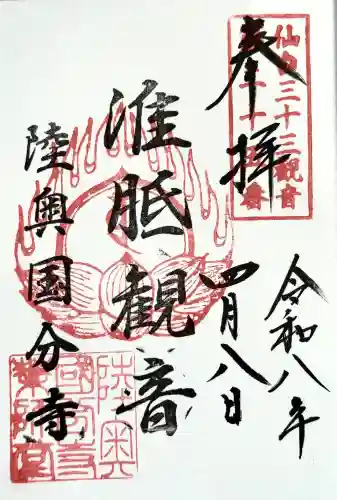 奉拝
仙台三十三観音
令和八年
四月八日
准胝観音
陸奥国分寺
陸奥
國分寺
薬師堂